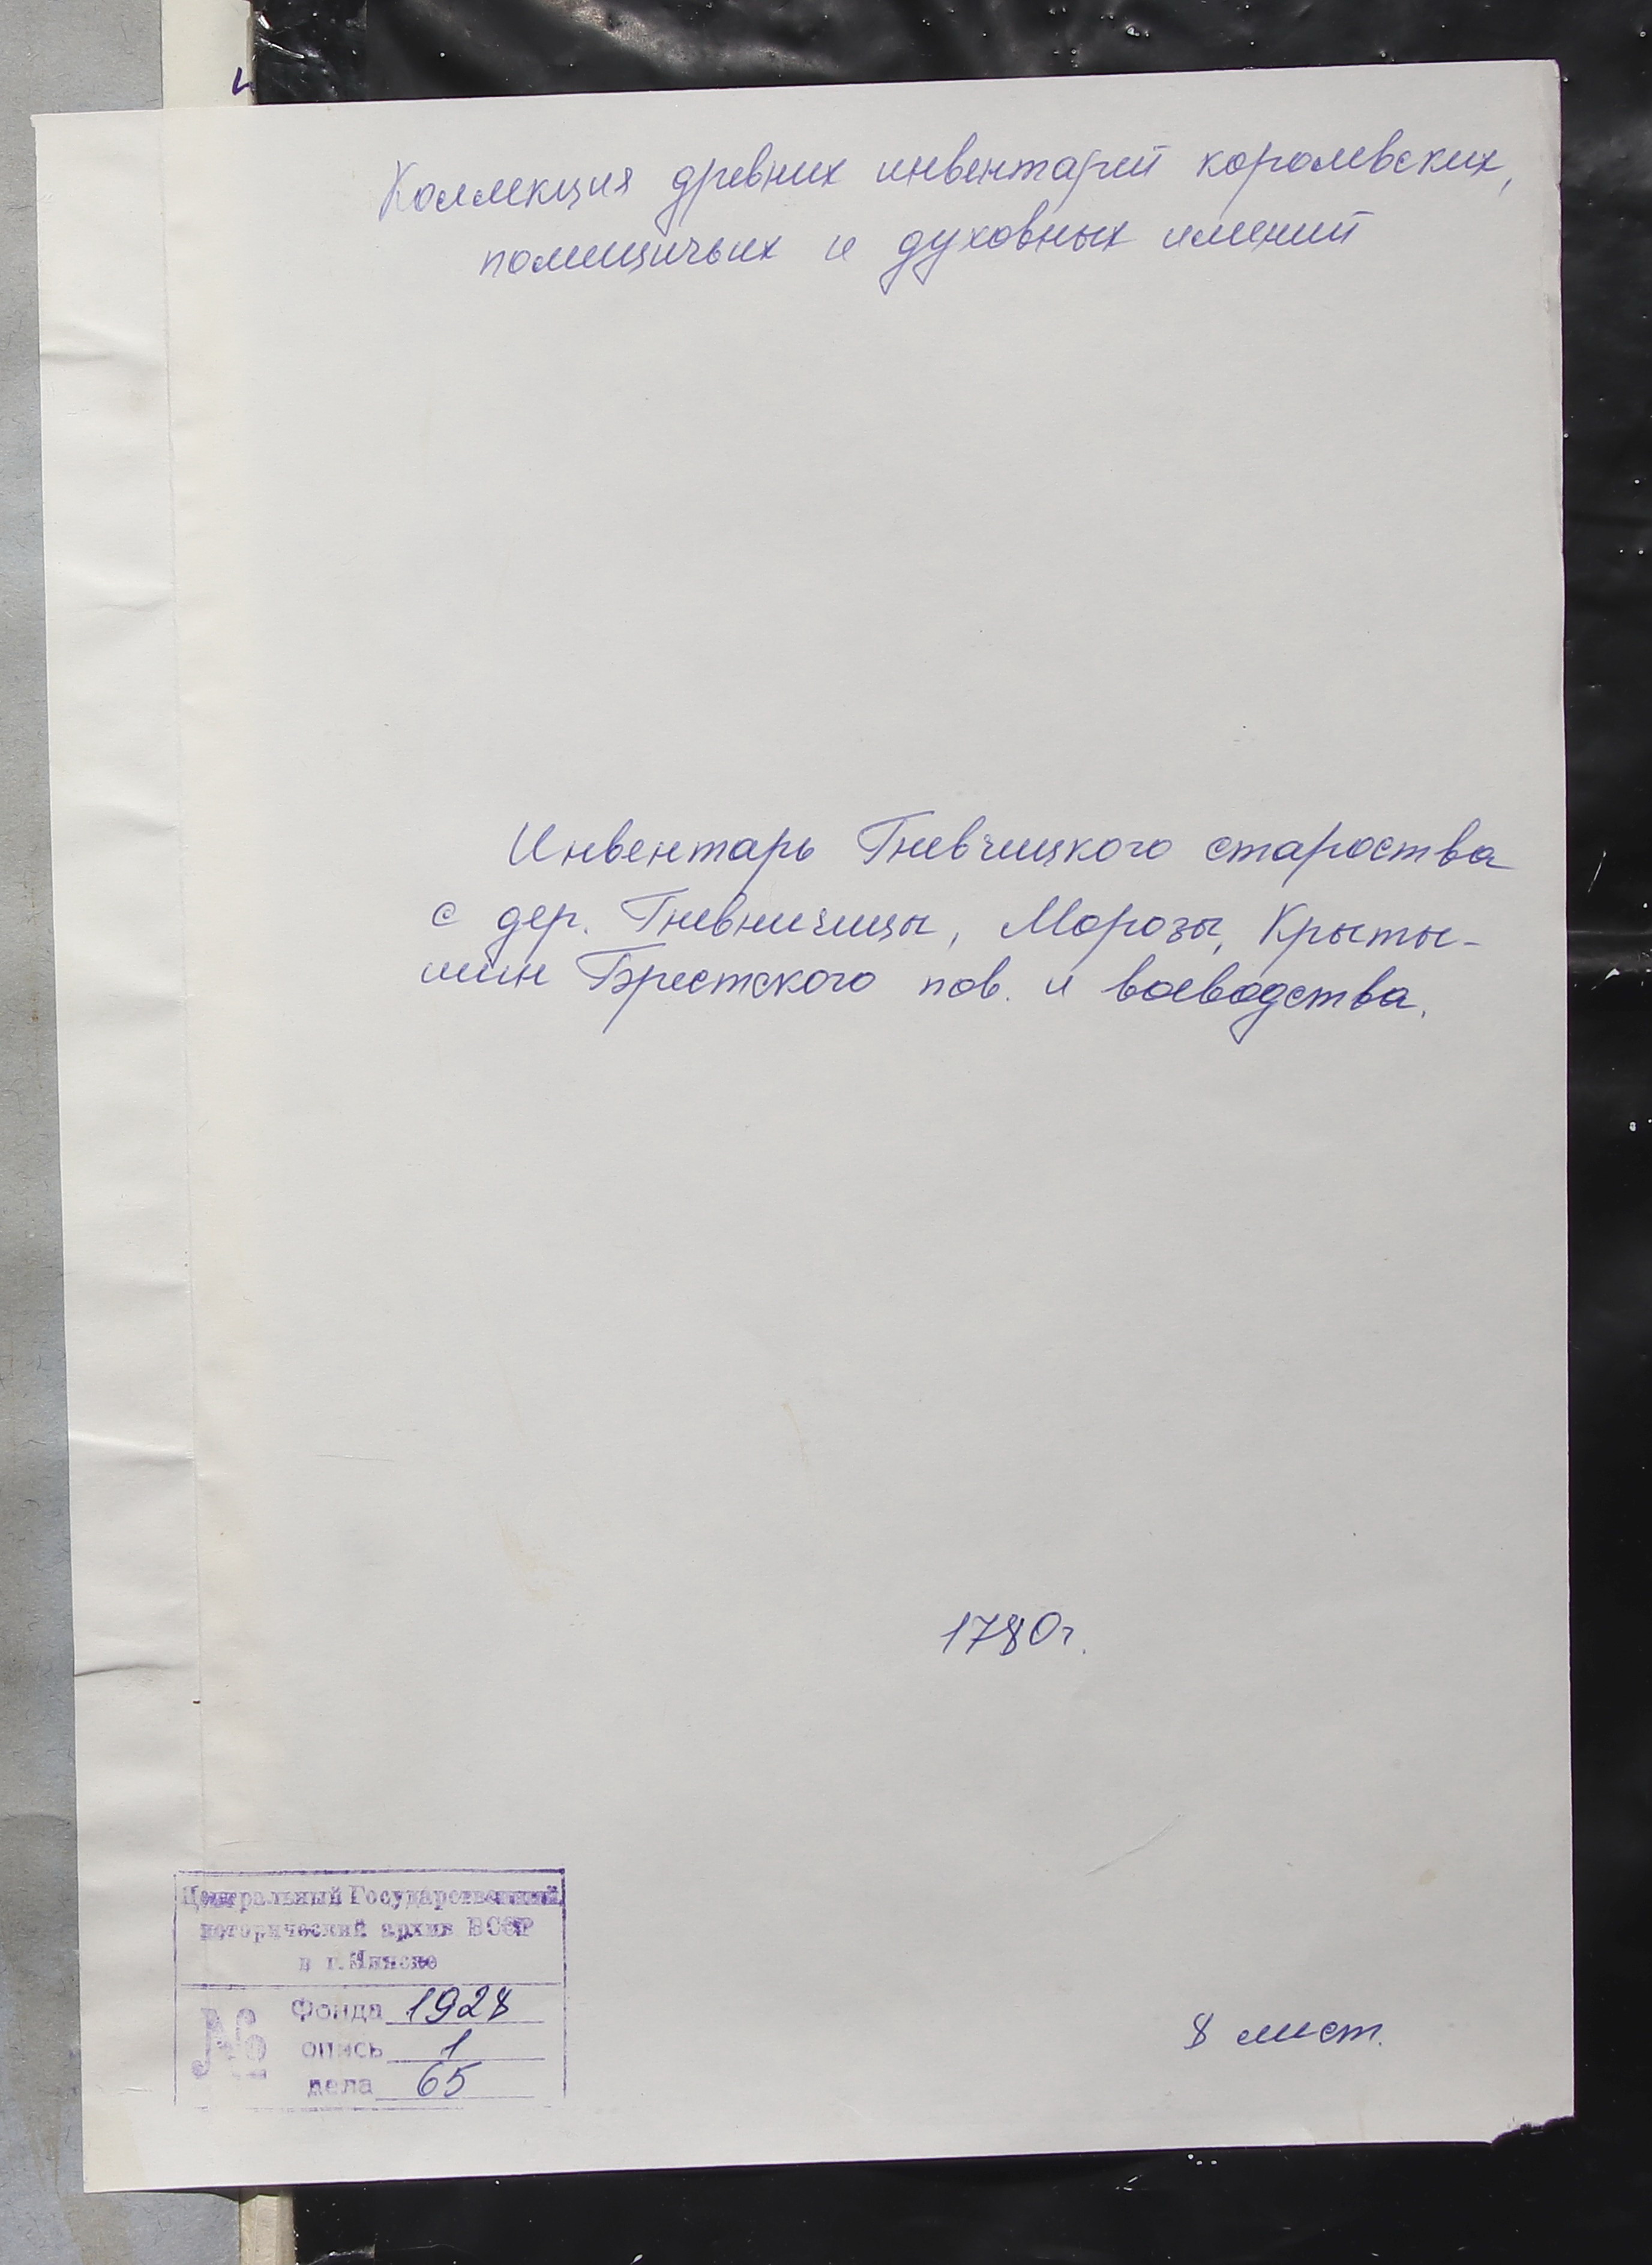 Коллекция древних инвентарей королевских,
помещичьих и духовных имений
Инвентарь Гневчицкого староства
с дер. Гневничицы, Морозы, Крыты-
шин Брестского пов. и воеводства.
1780г.
Центральный Государственный
исторический архив БССР
в г. Минске
№
Фонда 1928
опись 1
дела 65
8 лист.